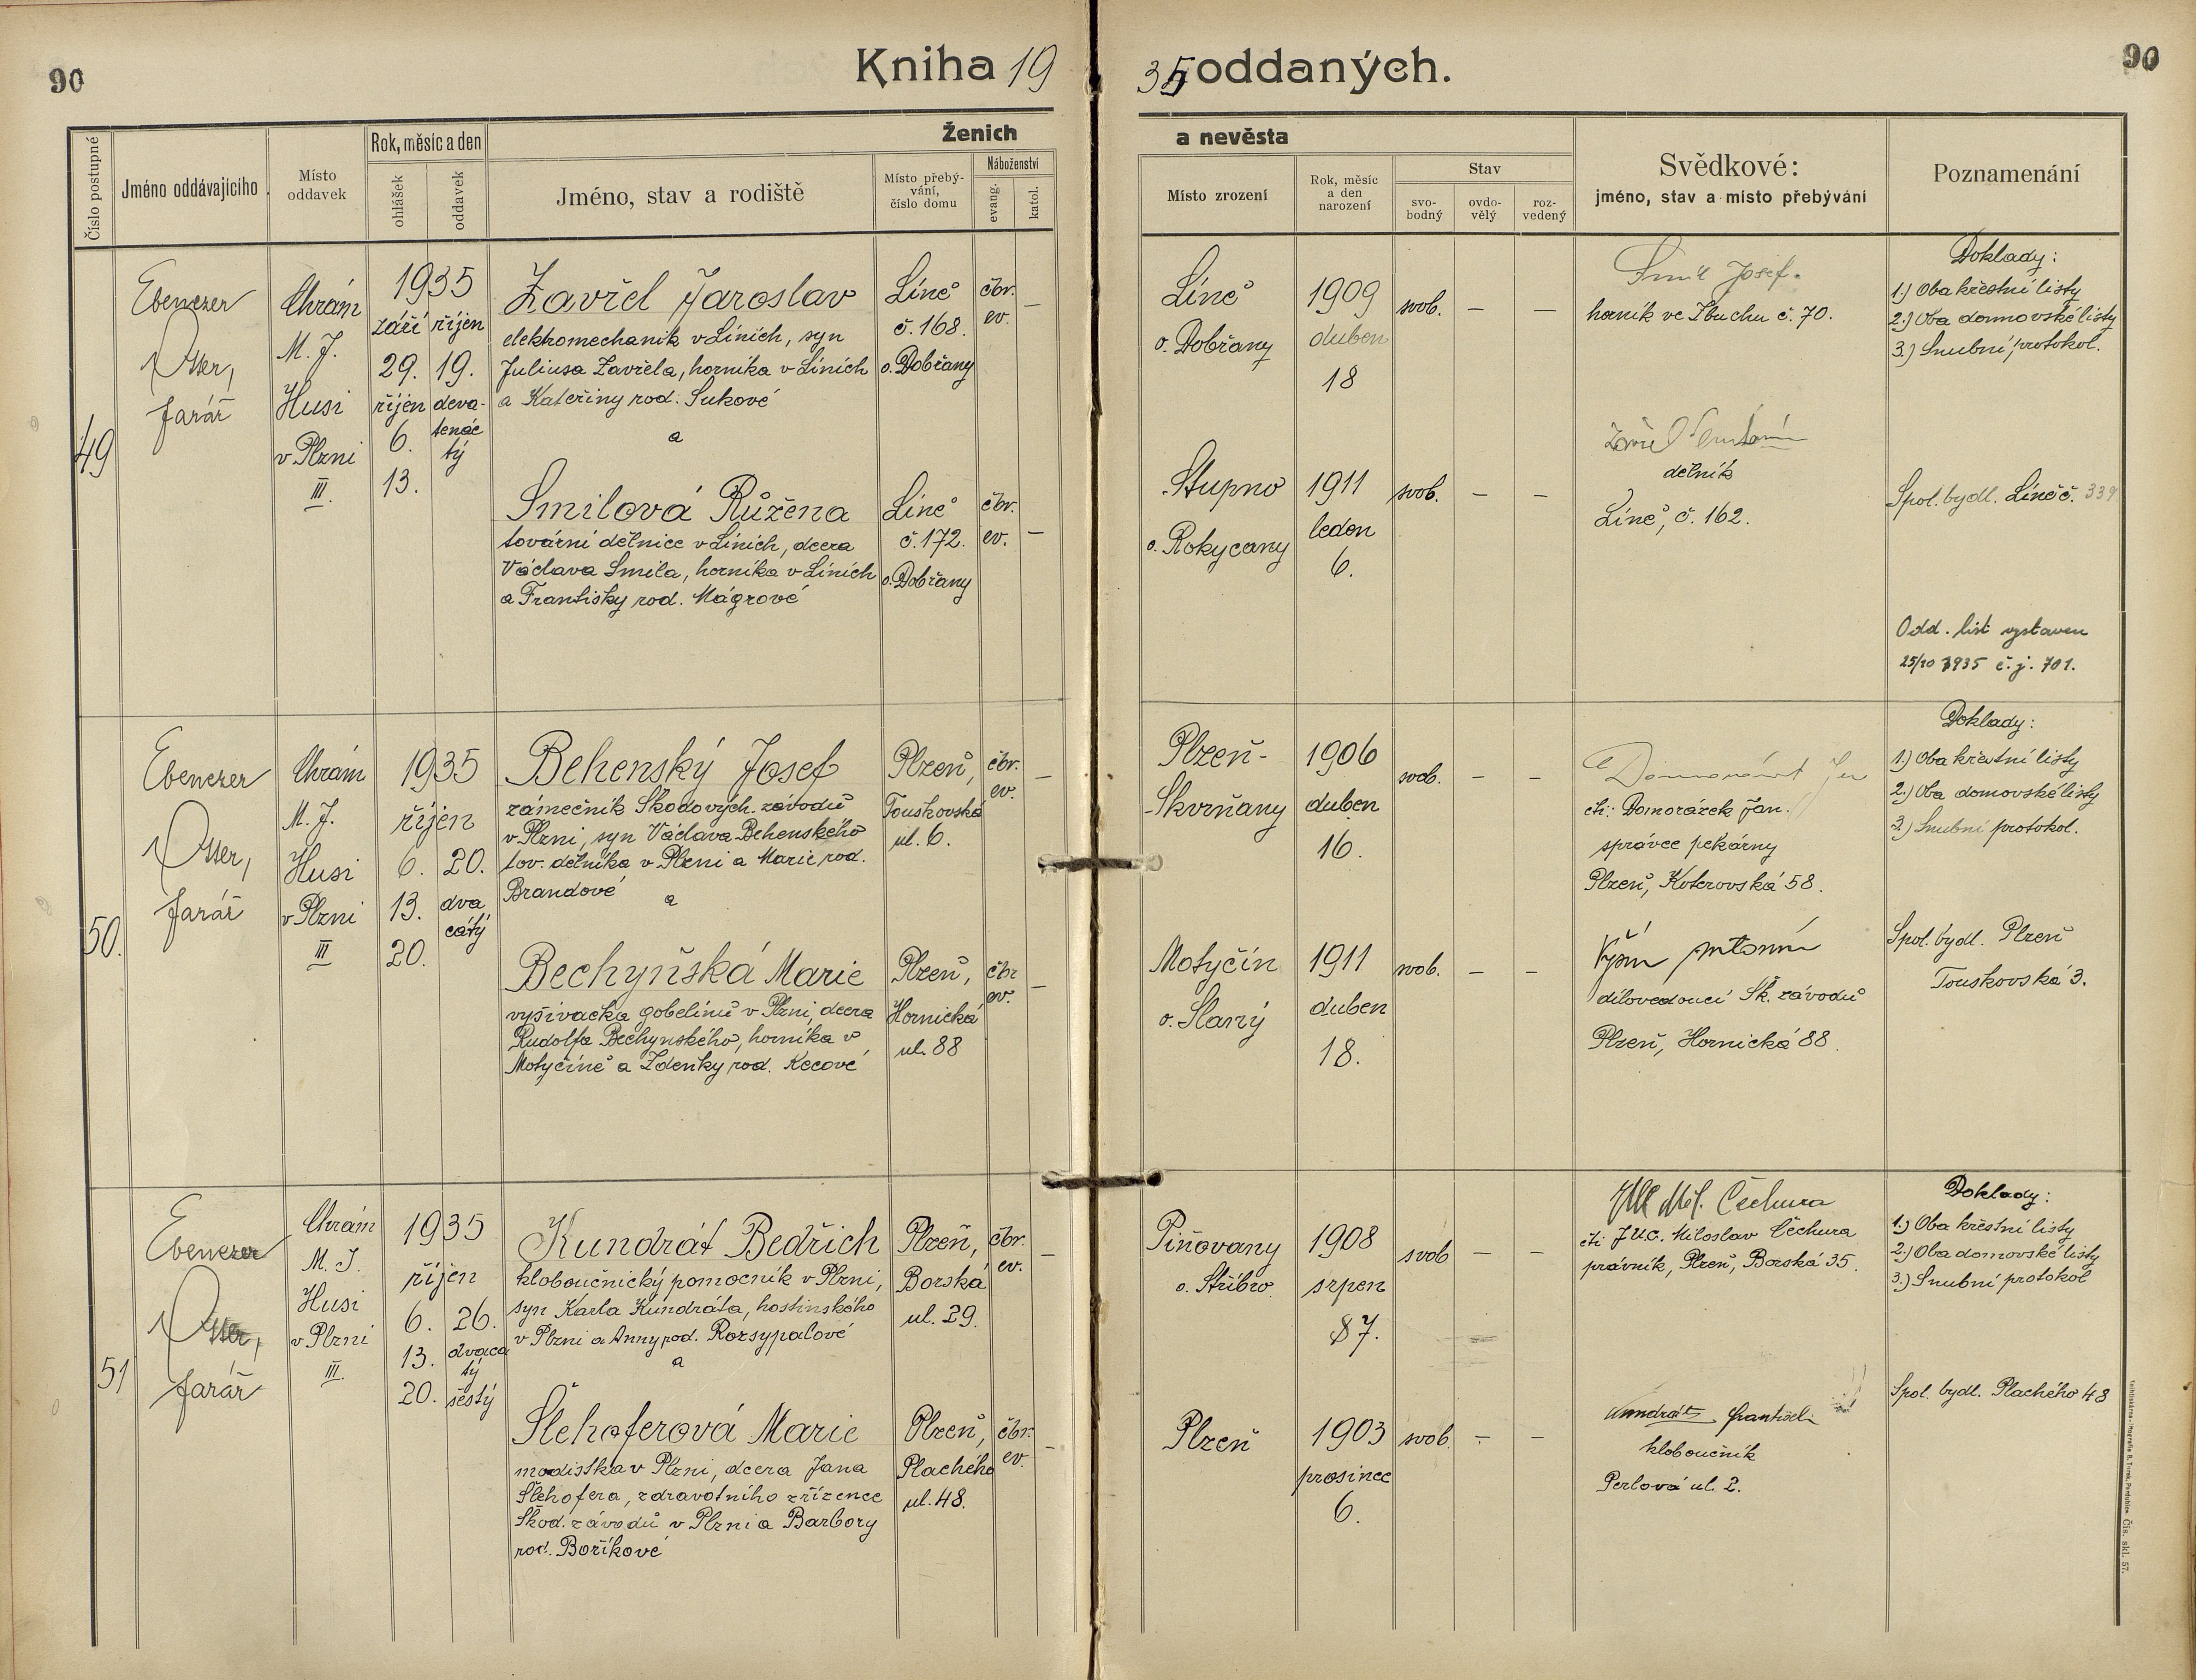 90
Kniha 19
35 oddaných.
90
Číslo postupné
Jméno oddávajícího
Místo
oddavek
Rok, měsíc a den
ohlášek
oddavek
Ženich
Jméno, stav a rodiště
Místo přebý-
vání,
číslo domu
Náboženství
evang.
katol.
a nevěsta
Místo zrození
Rok, měsíc
a den
narození
Stav
svo-
bodný
ovdo-
vělý
roz-
vedený
Svědkové:
jméno, stav a místo přebývání
Poznamenání
49
Ebenezer
Otter,
farář
Chrám
M. J.
Husi
v Plzni
III.
1935
září říjen
29. 19.
říjen deva-
6. tenác
tý
13.
Zavřel Jaroslav
elektromechanik v Líních, syn
Juliusa Zavřela, horníka v Líních
a Kateřiny rod. Sukové
a
Líně
č. 168.
o. Dobřany
čbr.
ev.
–
Líně
o. Dobřany
1909
duben
18
svob.
–
–
Smil Josef.
horník ve Zbuchu č. 70.
Doklady:
1.) Oba křestní listy
2.) Oba domovské listy
3.) Snubní protokol.
Smilová Růžena
tovární dělnice v Líních, dcera
Václava Smila, horníka v Líních
a Františky rod. Mágrové
Líně
č. 172.
o. Dobřany
čbr.
ev.
–
Stupno
o. Rokycany
1911
leden
6.
svob.
–
–
Zavřel
dělník
Líně, č. 162.
Spol. bydl. Líně č. 339
Odd. list vystaven
25/10 1935 č. j. 701.
50.
Ebenezer
Otter,
farář
Chrám
M. J.
Husi
v Plzni
III
1935
říjen
6. 20.
13. dva
cátý
20.
Behenský Josef
zámečník Škodových závodů
v Plzni, syn Václava Behenského
tov. dělníka v Plzni a Marie rod.
Brandové
a
Plzeň,
Touskovská
ul. 6.
čbr.
ev.
–
Plzeň-
-Skvrňany
1906
duben
16.
svob.
–
–
čti: Domorázek Jan.
správce pekárny
Plzeň, Koterovská 58.
Doklady:
1.) Oba křestní listy
2.) Oba domovské listy
3.) Snubní protokol.
Bechyňská Marie
vyšívačka gobelínů v Plzni, dcera
Rudolfa Bechyňského, horníka v
Motyčíně a Zdeňky rod. Kecové
Plzeň,
Hornická
ul. 88
čbr
ev.
–
Motyčín
o. Slaný
1911
duben
18.
svob.
–
–
Antonín
dílovedoucí Šk. závodů
Plzeň, Hornická 88.
Spol. bydl. Plzeň
Touskovská 3.
51
Ebenezer
Otter,
farář
Chrám
M. J.
Husi
v Plzni
III.
1935
říjen
6. 26.
13. dvacá
tý
20. šestý
Kundrát Bedřich
kloboučnický pomocník v Plzni,
syn Karla Kundráta, hostinského
v Plzni a Anny rod. Rozsypalové
a
Plzeň,
Borská
ul. 29.
čbr.
ev.
–
Piňovany
o. Stříbro
1908
srpen
7.
svob
–
–
JUC Mil. Čechura
čti JUC. Miloslav Čechura
právník, Plzeň, Borská 35.
Doklady:
1.) Oba křestní listy
2.) Oba domovské listy
3.) Snubní protokol
Šlehoferová Marie
modistka v Plzni, dcera Jana
Šlehofera, zdravotního zřízence
Škod. závodů v Plzni a Barbory
rod. Boříkové
Plzeň,
Plachého
ul. 48.
čbr.
ev.
–
Plzeň
1903
prosinec
6.
svob.
–
–
Kundrát František
kloboučník
Perlová ul. 2.
Spol. bydl. Plachého 48
Čís. skl. 57.